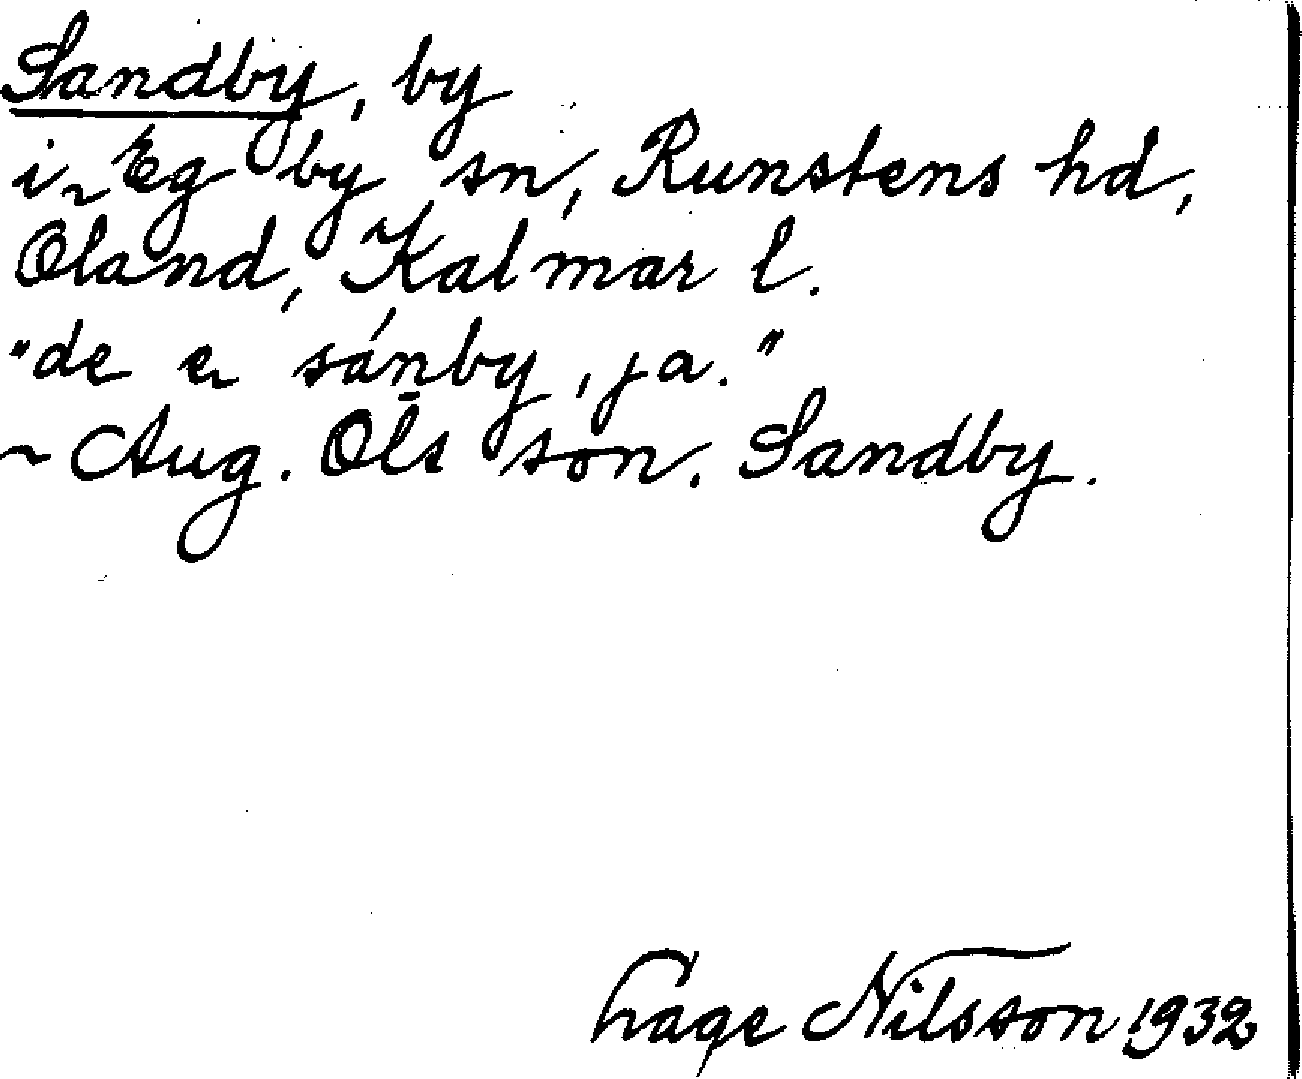 Sandby, by
i Egby sn, Runstens hd,
Öland, Kalmar l.
"de e sánby, ja."
~ Aug. Olsson. Sandby.
Hage Nilsson 1932